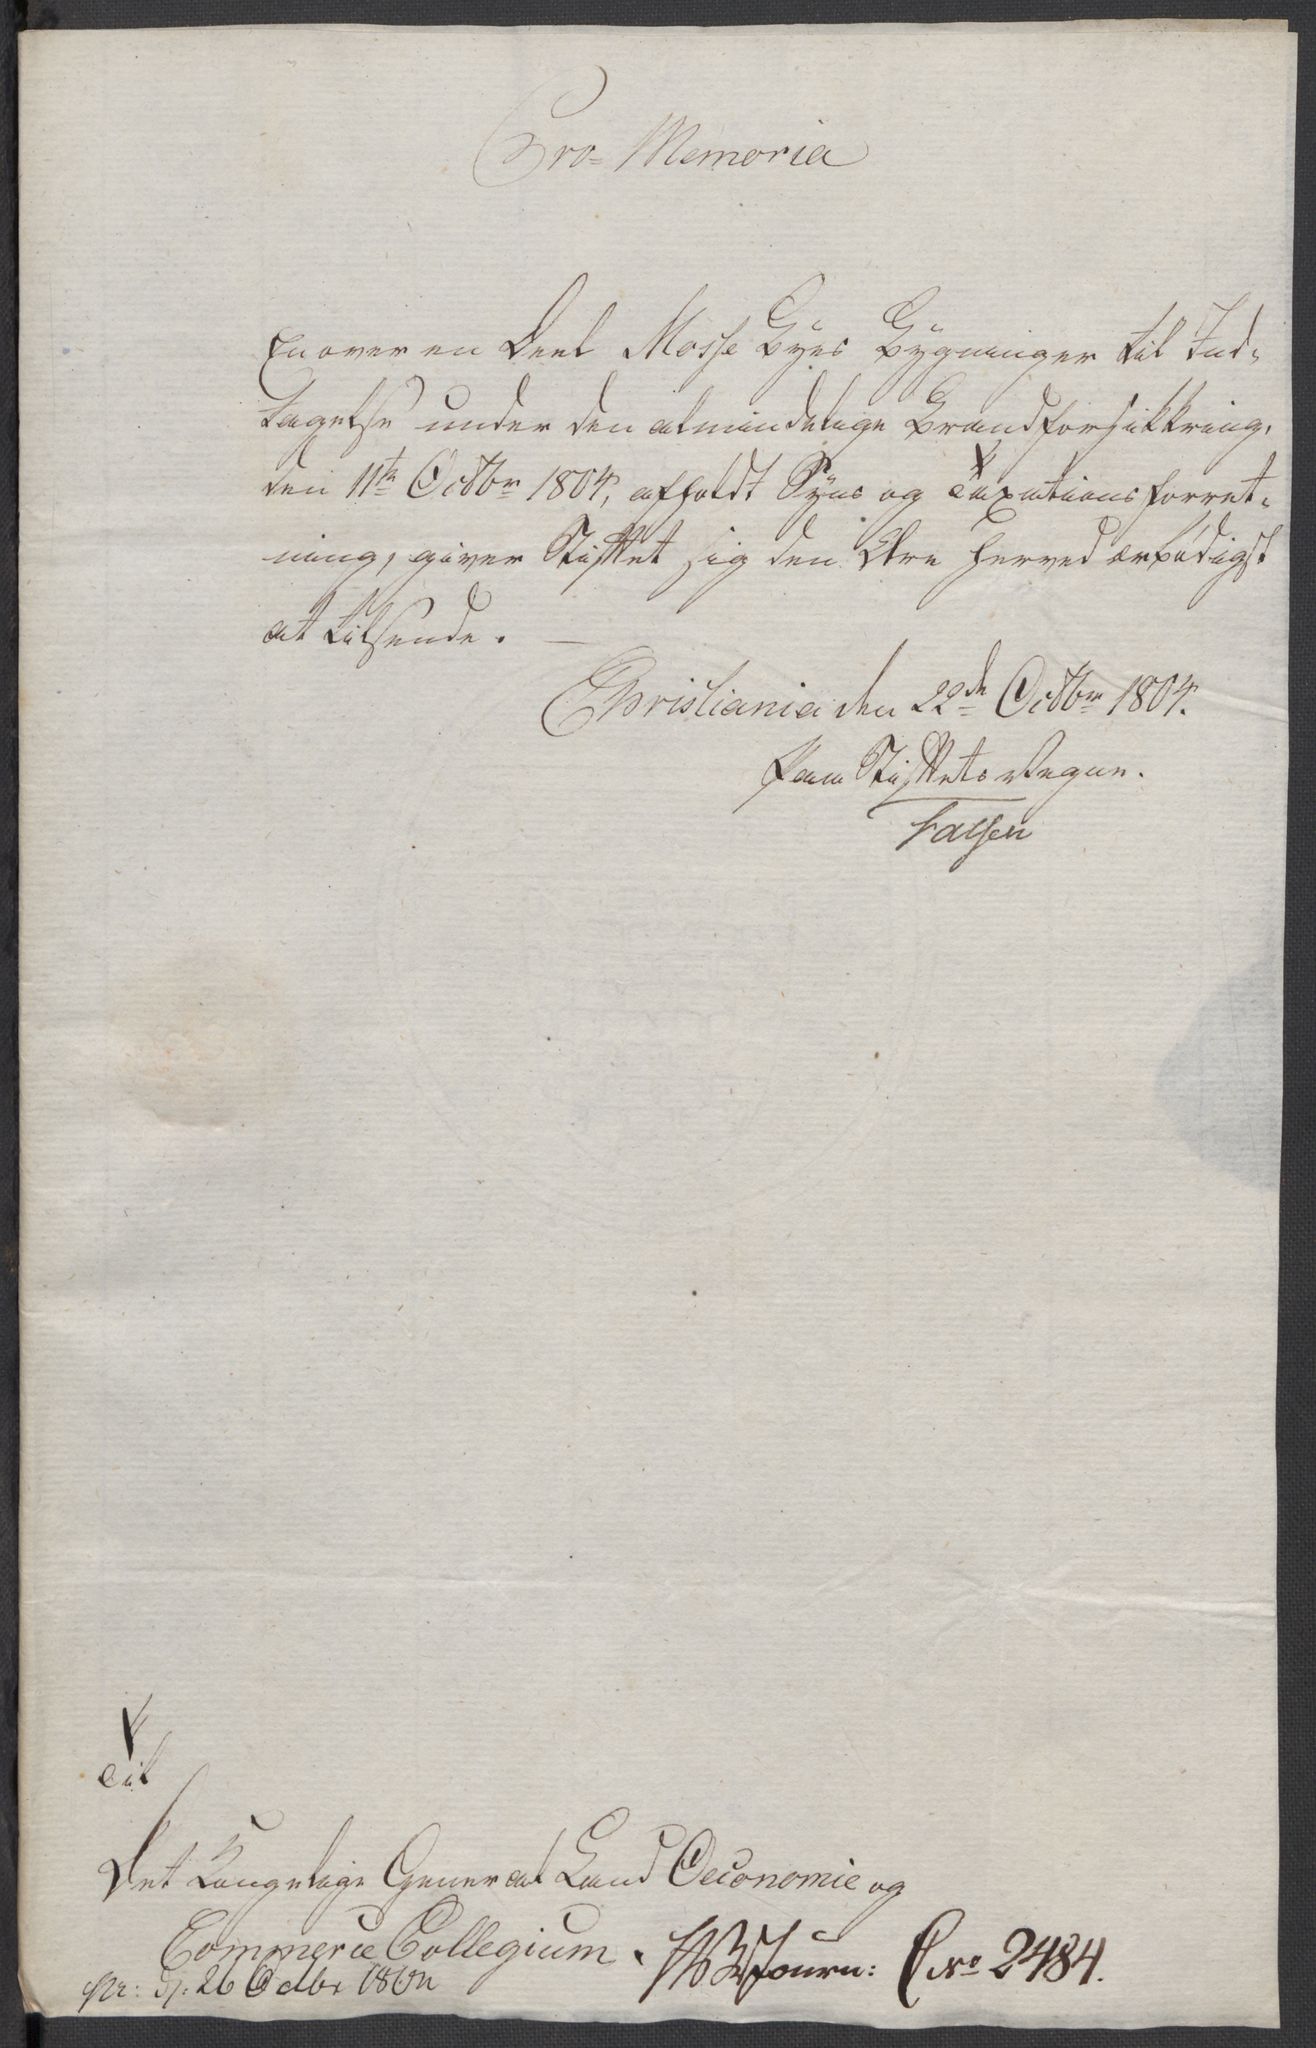 Pro Memoria
En over en Deel Mosse Byes Bygninger til Ind-
tagelse under den almindelige Brandforsikkring,
den 11te Octbr 1804, afholdt Syns og Taxationsforret-
ning, giver Stiftet sig den Ære herved ærbödigst
at tilsende. —
Christiania den 22de Octbr 1804.
Paa Stiftets Vegne.
Falsen
Til
Det Kongelige General Land Oeconomie og
Commerce Collegium.
Journ: C No 2484.
Pr: d: 26 Octbr 1804